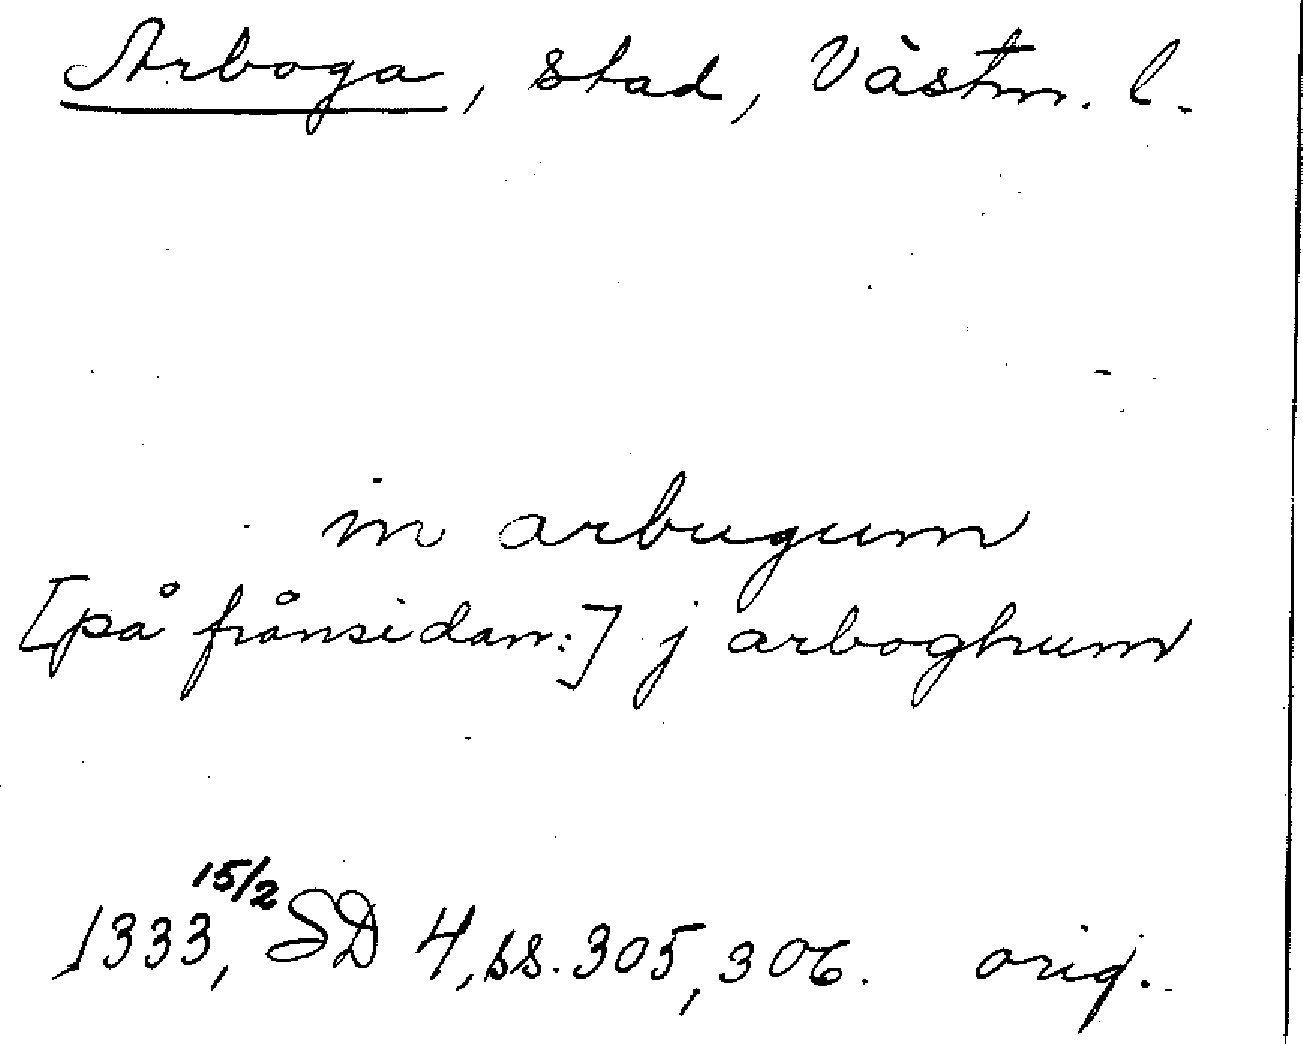 Arboga, stad, Västm. l.
in arbugum
[på frånsidan:] j arboghum
1333, 15/2 SD 4, ss. 305, 306. orig.